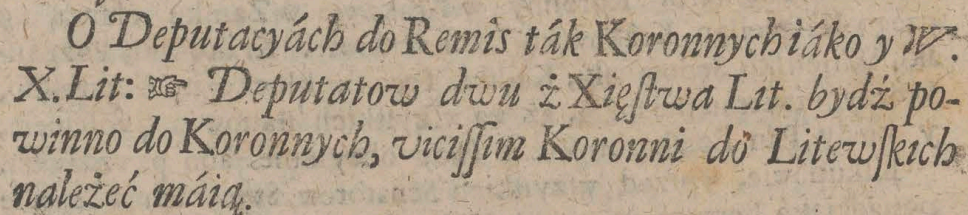 O Deputacyách do Remis ták Koronnych iáko y W.
X. Lit: ☞ Deputatow dwu ż Xięſtwa Lit. bydź po-
winno do Koronnych, viciſſim Koronni do Litewſkich
należeć máią.